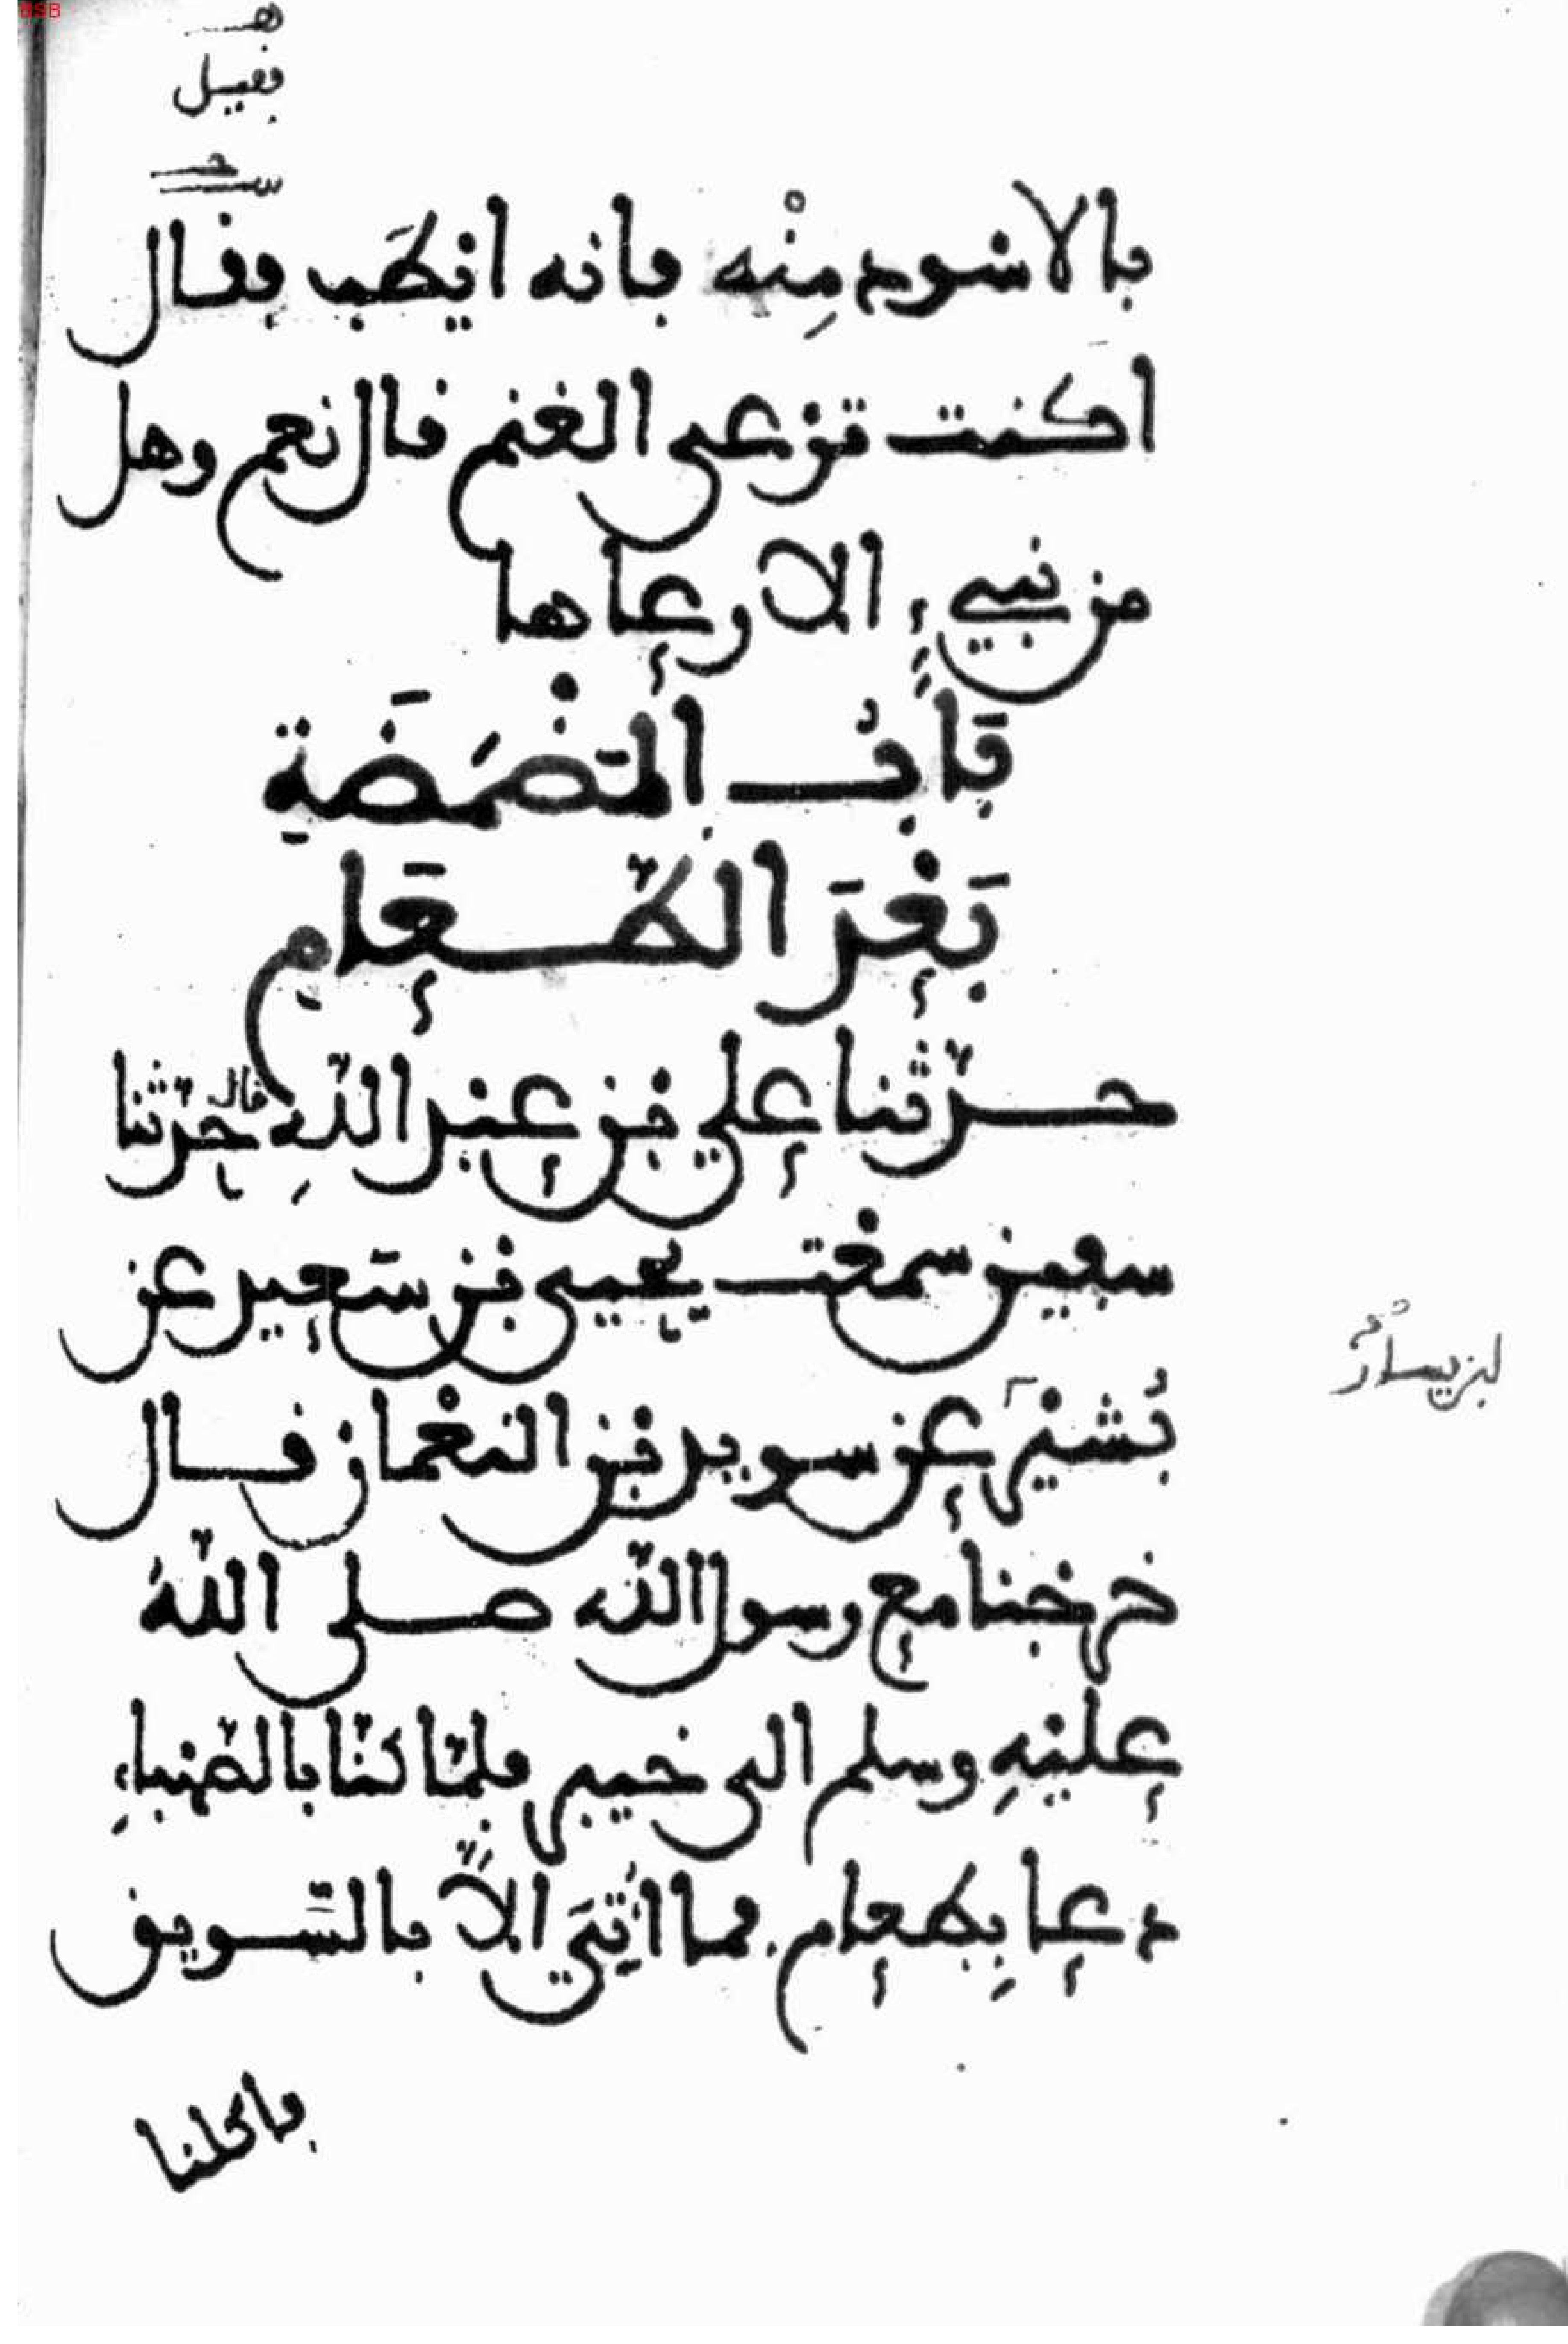 فقيل
بالاسود منه فانه ايطب فقال
اكنت ترعى الغنم قال نعم وهل
من نبيء الا رعاها
بَابُ المَضْمَضَةِ
بَعْدَ الطَّعَامِ
حدّثنا علي بن عبد اللّهِ قال حدّثنا
سفين سمعت يحيى بن سَعيد عن
بُشَيْرٍ عن سويد بن النعْمان قال
لبن يسار
خرجنا مع رسول اللّه صلى اللّهُ
عليْهِ وسلم الى خيبر فلمّا كنّا بالصّهباءِ
دعا بِطعام فما أُتِيَ الاّ بالسَّويق
فاكلنا